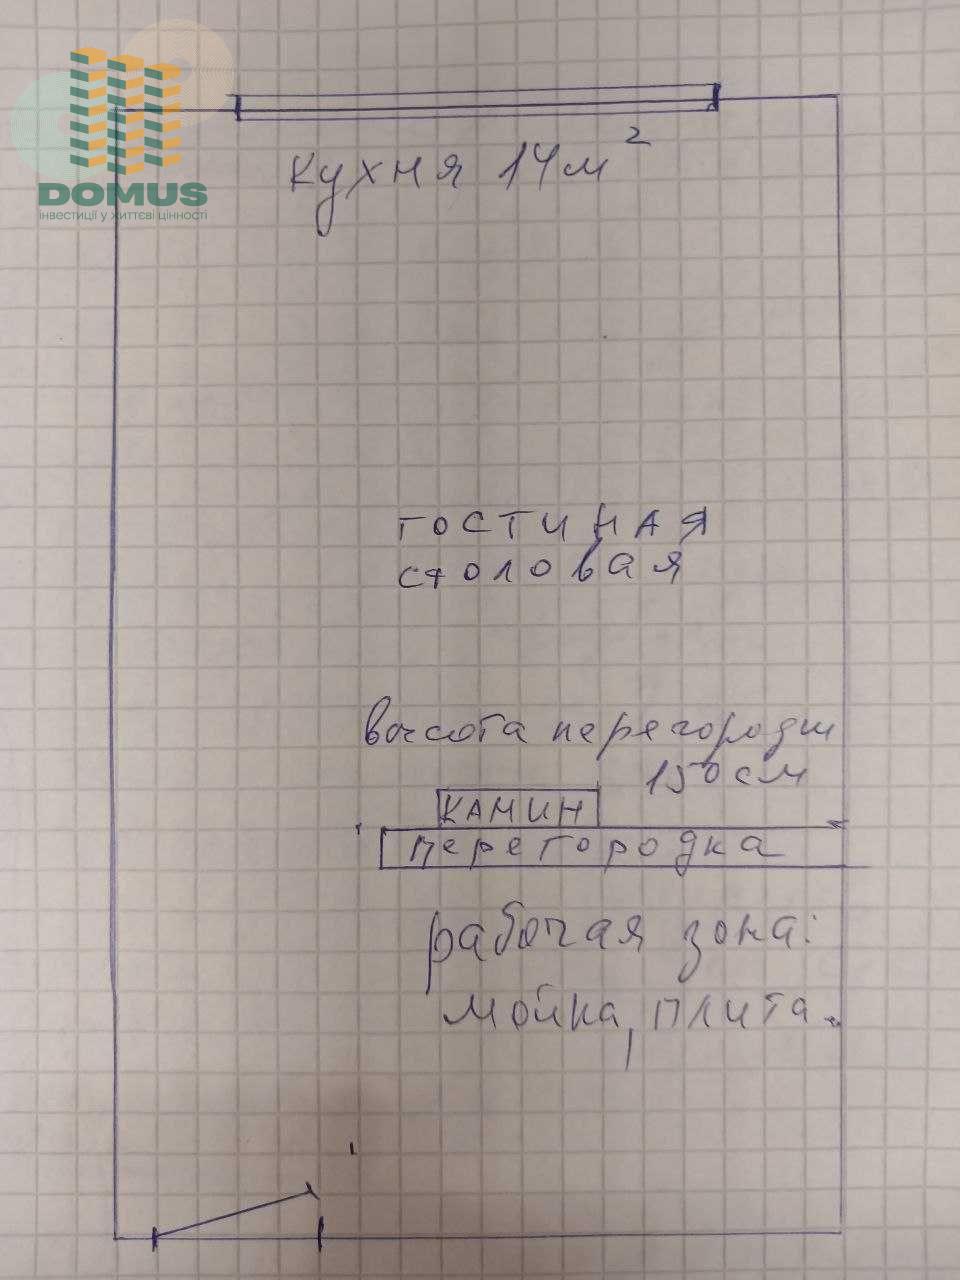 DOMUS
інвестиції у життєві цінності
кухня 14м²
гостиная
столовая
высота перегородки
150 см
КАМИН
перегородка
рабочая зона:
мойка, плита.